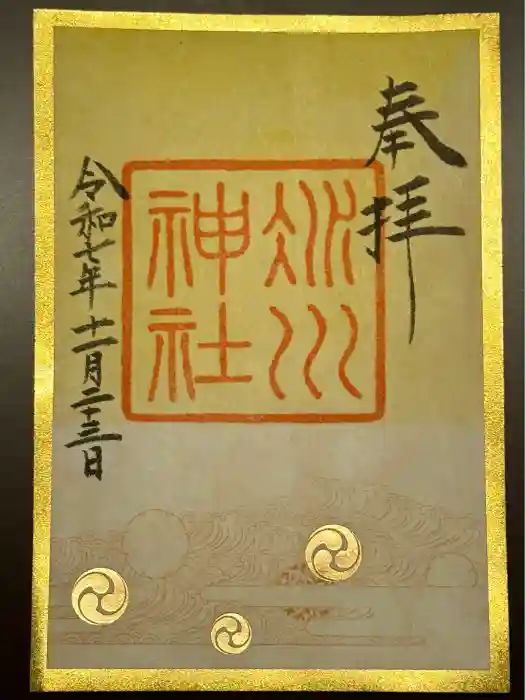 奉拝
氷川
神社
令和七年十一月二十三日